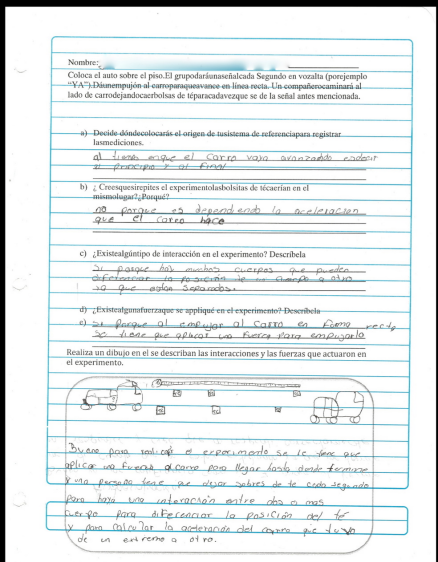 Nombre:
Coloca el auto sobre el piso.El grupodaráunaseñalcada Segundo en vozalta (porejemplo
"YA").Dáunempujón al carroparaqueavance en línea recta. Un compañerocaminará al
lado de carrodejandocaerbolsas de téparacadavezque se de la señal antes mencionada.
a) Decide dóndecolocarás el origen de tusistema de referenciapara registrar
lasmediciones.
a) tiempo enque el carro vaya avanzando esdecir
al principio y al Final
b) ¿ Creesquesirepites el experimentolasbolsitas de técaerían en el
mismolugar?¿Porqué?
no porque es dependiendo la aceleracion
que el carro hace
c) ¿Existealgúntipo de interacción en el experimento? Descríbela
si porque hay muchos cuerpos que pueden
diferenciar la posición de un cuerpo a otro
ya que estan separados.
d) ¿Existealgunafuerzaque se appliqué en el experimento? Descríbela
e) si Porque al empujar al carro en Forma recta
se tiene que aplicar una fuerza para empujarlo
Realiza un dibujo en el se describan las interacciones y las fuerzas que actuaron en
el experimento.
Bueno para realizar el experimento se le tiene que
aplicar una Fuerza al carro para llegar hasta donde termine
y una persona tiene que dejar sobres de te cada segundo
para haya una interacción entre dos o mas
cuerpo para diferenciar la posición del té
y para calcular la aceleración del carro que tuvo
de un extremo a otro.